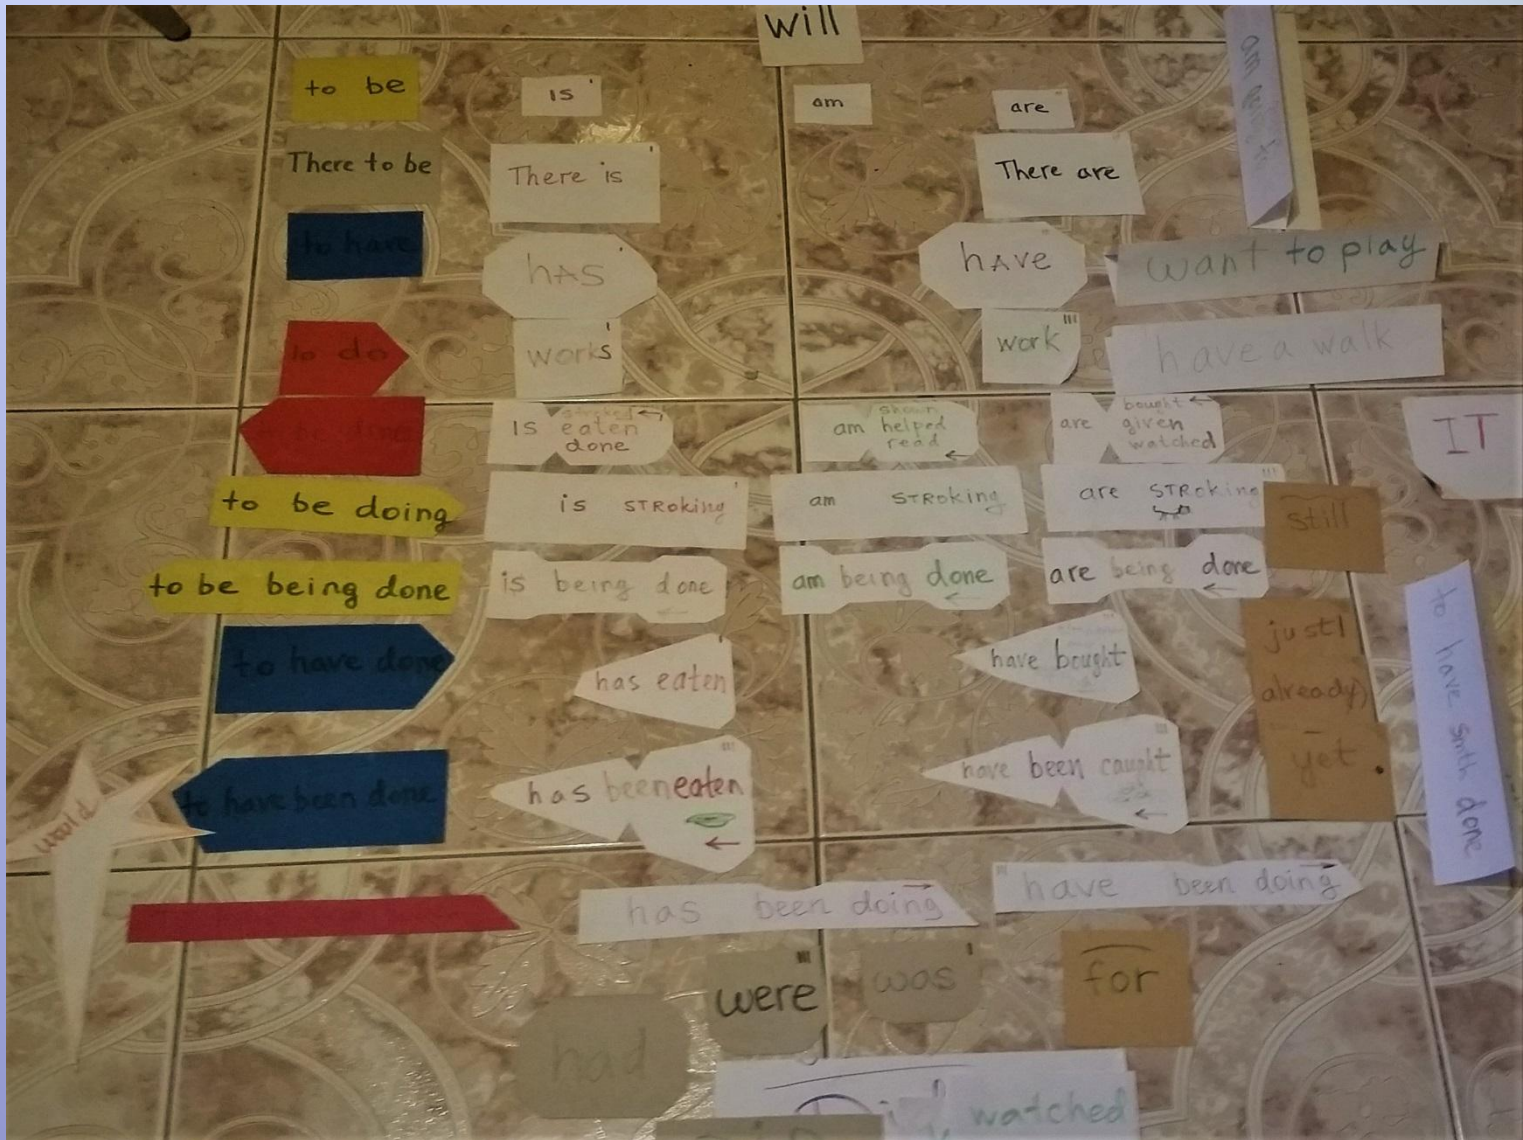 will
to be
is
am
are
There to be
There is
There are
to have
hAS
hAve
want to play
to do
works
work
have a walk
is
stroked
eaten
done
am
shown
helped
read
are
bought
given
watched
IT
to be doing
is STROking
am STROking
are STROking
still
to be being done
is being done
am being done
are being done
to have done
has eaten
have bought
just
already
yet
to have smth done
would
to have been done
has been eaten
have been caught
has been doing
have been doing
were
was
for
had
watched